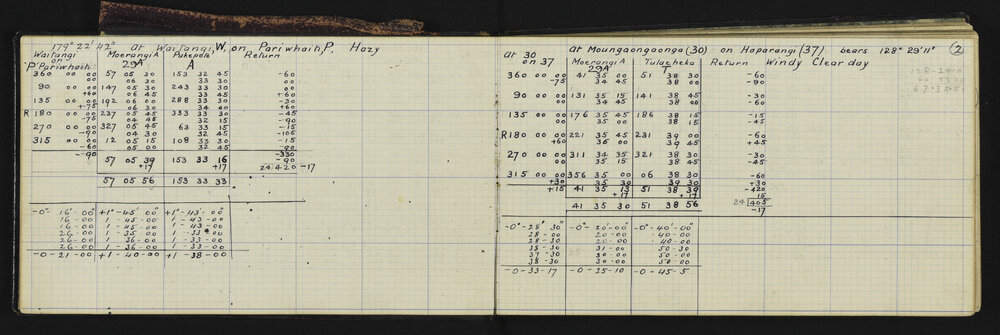 179° 22' 42" at Waitangi, W, on Pariwhaiti, P, Hazy
Waitangi Moerangi A Pukenola Return
on 29A A
P Pariwhaiti
360 00 00 57 05 30 153 32 45 -60
00 06 30 33 30 00
90 00 00 147 05 30 243 33 30 00
00 06 30 33 45 +60
135 00 00 192 06 00 288 33 30 -30
+75 06 30 34 00 +60
R 180 00 00 237 05 45 333 33 30 -45
-75 04 45 32 15 -90
270 00 00 327 05 45 63 33 15 -15
-90 04 30 32 45 -105
315 00 00 12 05 15 108 33 30 -15
-60 05 00 32 45 -90
-90 -330
57 05 39 153 33 16 -90
+17 +17 24 420 -17
57 05 56 153 33 33
-0° 16'-00" +1°-45'-00" +1°-43'-00"
16-00 1-45-00 1-43-00
16-00 1-45-00 1-43-00
26-00 1-35-00 1-33-00
26-00 1-36-00 1-33-00
26-00 1-36-00 1-33-00
-0-21-00 +1-40-00 +1-38-00
At 30 at Moungaongaonga (30) on Haparangi (37) bears 128° 29' 11" 2
on 37 Moerangi A Tulacheka Return Windy Clear day
29A T
360 00 00 41 35 00 51 38 30 -60
-75 34 45 38 00 -90
90 00 00 131 35 15 141 38 45 -30
00 34 45 38 00 -60
135 00 00 176 35 45 186 38 15 -15
00 35 00 38 15 -45
R180 00 00 221 35 45 231 39 00 -60
+60 36 00 39 45 +45
270 00 00 311 34 35 321 38 30 -30
00 35 15 38 30 -45
315 00 00 356 35 00 06 38 30 -60
+30 35 30 39 30 +30
+15 41 35 13 51 38 39 -420
+17 17 15
41 35 30 51 38 56 24 405
-17
-0°-28' 30" -0°-20'-00" -0°-40'-00"
28-00 20-00 40-00
28-30 20-00 40-00
38-30 31-00 50-30
37-30 30-00 50-00
38-30 30-00 50-00
-0-33-17 -0-25-10 -0-45-5